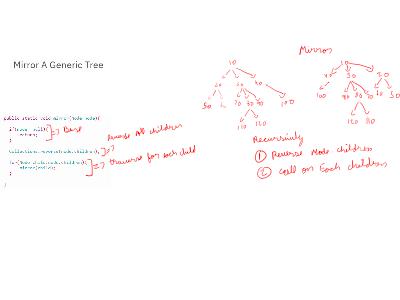 Mirror A Generic Tree
public static void mirror(Node node){
if(node==null){ => Base
return;
}
reverse All children
Collections.reverse(node.children); =>
for(Node child:node.children){
mirror(child); => traverse for each child
}
}
Mirror
10
20 30 40
50 60 70 80 90 100
110 120
10
40 30 20
100 90 80 70 60 50
120 110
Recursively
① Reverse Node children
② Call on Each children